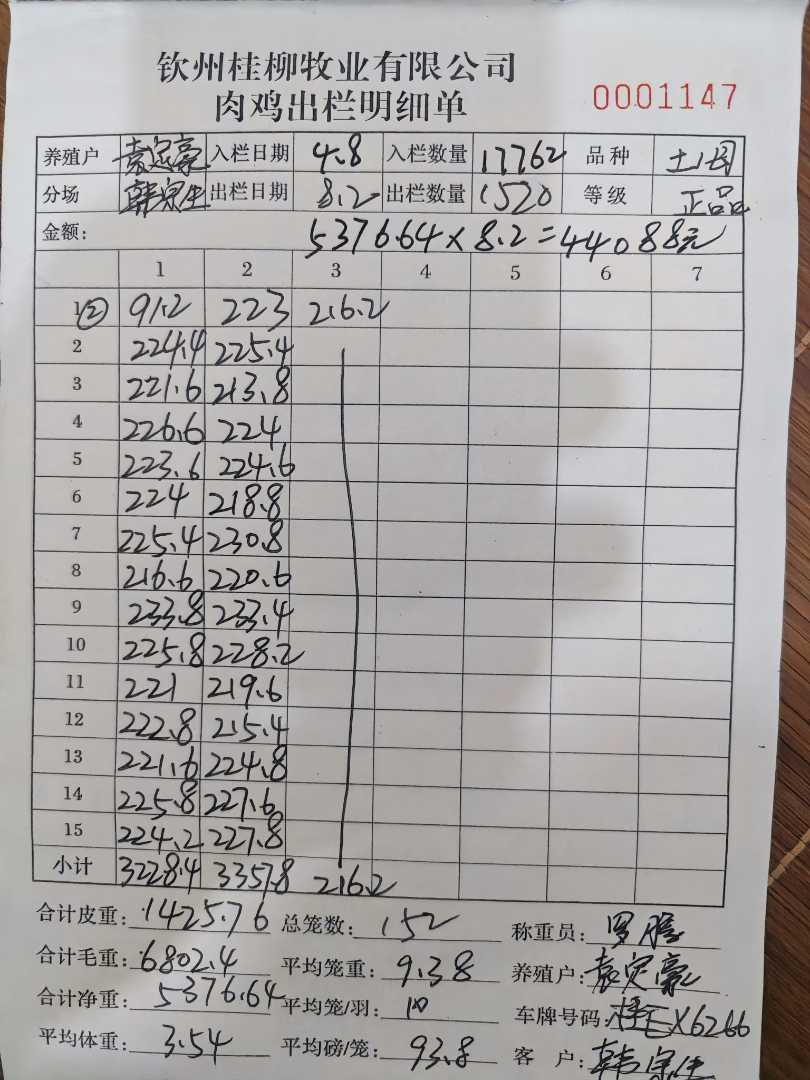 钦州桂柳牧业有限公司
肉鸡出栏明细单
0001147
养殖户 袁定豪 入栏日期 4.8 入栏数量 17762 品种 土2母
分场 韩宗生 出栏日期 8.2 出栏数量 1520 等级 正品
金额: 5376.64×8.2=44088元
1 2 3 4 5 6 7
1② 91.2 223 216.2
2 224.4 225.4
3 221.6 213.8
4 226.6 224
5 223.6 224.6
6 224 218.8
7 225.4 230.8
8 216.6 220.6
9 233.8 233.4
10 225.8 228.2
11 221 219.6
12 222.8 215.4
13 221.6 224.8
14 225.8 227.6
15 224.2 227.8
小计 3228.4 3357.8 216.2
合计皮重: 1425.76 总笼数: 152 称重员: 罗胜
合计毛重: 6802.4 平均笼重: 9.38 养殖户: 袁定豪
合计净重: 5376.64 平均笼/羽: 10 车牌号码: 桂EX6266
平均体重: 3.54 平均磅/笼: 93.8 客户: 韩宗生